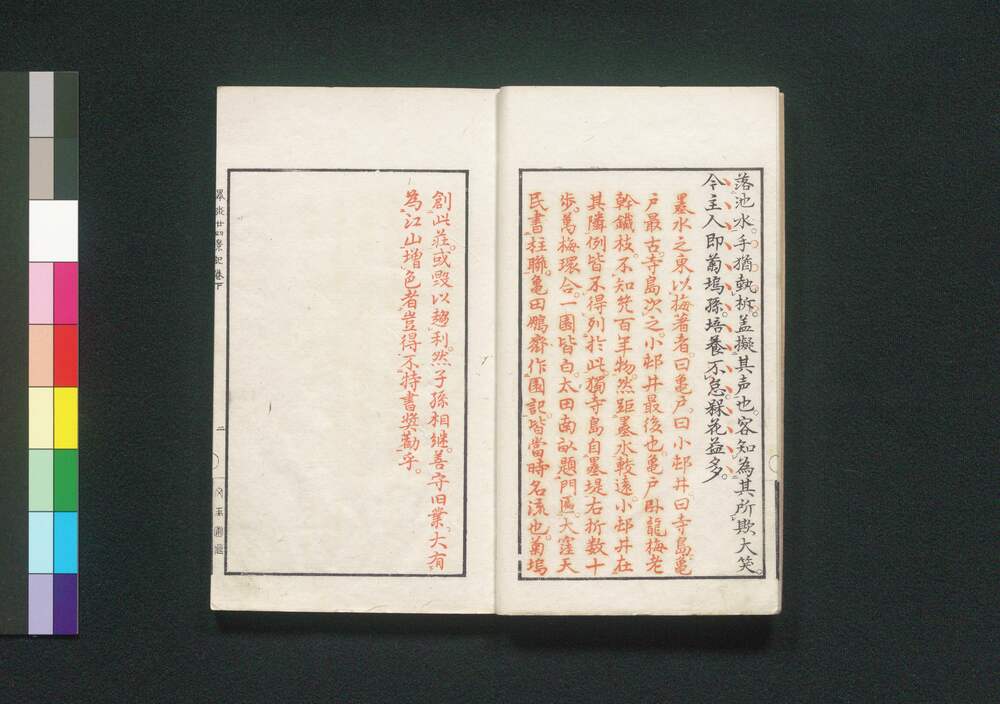 落池水。手猶執柝。盖擬其声也。容知為其所欺大笑。
今主人即菊塢孫。培養不怠。緑花益多。
墨水之東以梅著者。曰亀戸。曰小邨井。曰寺島。亀
戸最古。寺島次之。小邨井最後也。亀戸臥龍梅老
幹鐵枝。不知幾百年物。然距墨水較遠。小邨井在
其隣。例皆不得列於此。獨寺島自墨堤右折数十
歩。萬梅環合。一園皆白。太田南畝題門匾。大窪天
民書柱聯。亀田鵬齋作園記。皆當時名流也。菊塢
創此荘。或毀以趨利。然子孫相継。善守旧業。大有
為江山増色者。豈得不特書奨勸乎。
卷下
二